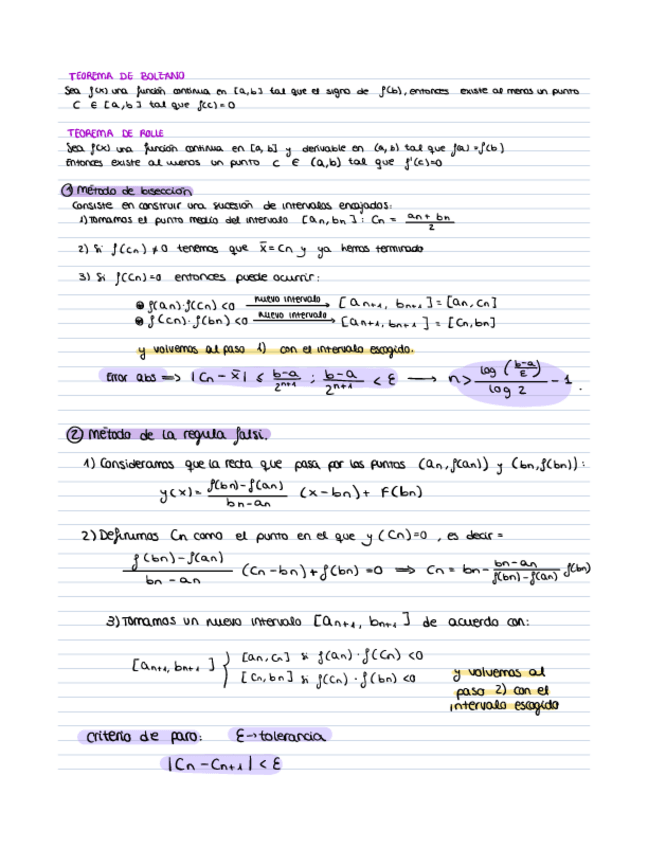 TEOREMA DE BOLZANO
Sea f(x) una función continua en [a,b] tal que el signo de f(b), entonces existe al menos un punto
C ∈ [a,b] tal que f(c)=0
TEOREMA DE ROLLE
Sea f(x) una función continua en [a,b] y derivable en (a,b) tal que f(a)=f(b)
Entonces existe al menos un punto c ∈ (a,b) tal que f'(c)=0
① Método de bisección
Consiste en construir una sucesión de intervalos encajados:
1) Tomamos el punto medio del intervalo [an, bn] : Cn = (an + bn)/2
2) Si f(cn) ≠ 0 tenemos que x̄ = Cn y ya hemos terminado
3) Si f(Cn)=0 entonces puede ocurrir:
• f(an)·f(Cn) <0 nuevo intervalo → [an+1, bn+1] = [an, Cn]
• f(cn)·f(bn) <0 nuevo intervalo → [an+1, bn+1] = [Cn, bn]
y volvemos al paso 1) con el intervalo escogido.
Error abs => |Cn - x̄| ≤ (b-a)/2^(n+1) ; (b-a)/2^(n+1) < ε → n > log((b-a)/ε)/log 2 - 1.
② Método de la regula falsi.
1) Consideramos que la recta que pasa por los puntos (an, f(an)) y (bn, f(bn)):
y(x) = (f(bn)-f(an))/(bn-an) (x-bn) + F(bn)
2) Definimos Cn como el punto en el que y(Cn)=0, es decir=
(f(bn)-f(an))/(bn-an) (Cn-bn)+f(bn) =0 => Cn = bn - (bn-an)/(f(bn)-f(an)) f(bn)
3) Tomamos un nuevo intervalo [an+1, bn+1] de acuerdo con:
[an+1, bn+1] } [an, Cn] si f(an)·f(Cn) <0
[Cn, bn] si f(Cn)·f(bn) <0
y volvemos al
paso 2) con el
intervalo escogido
criterio de paro: ε→tolerancia
|Cn - Cn+1| < ε